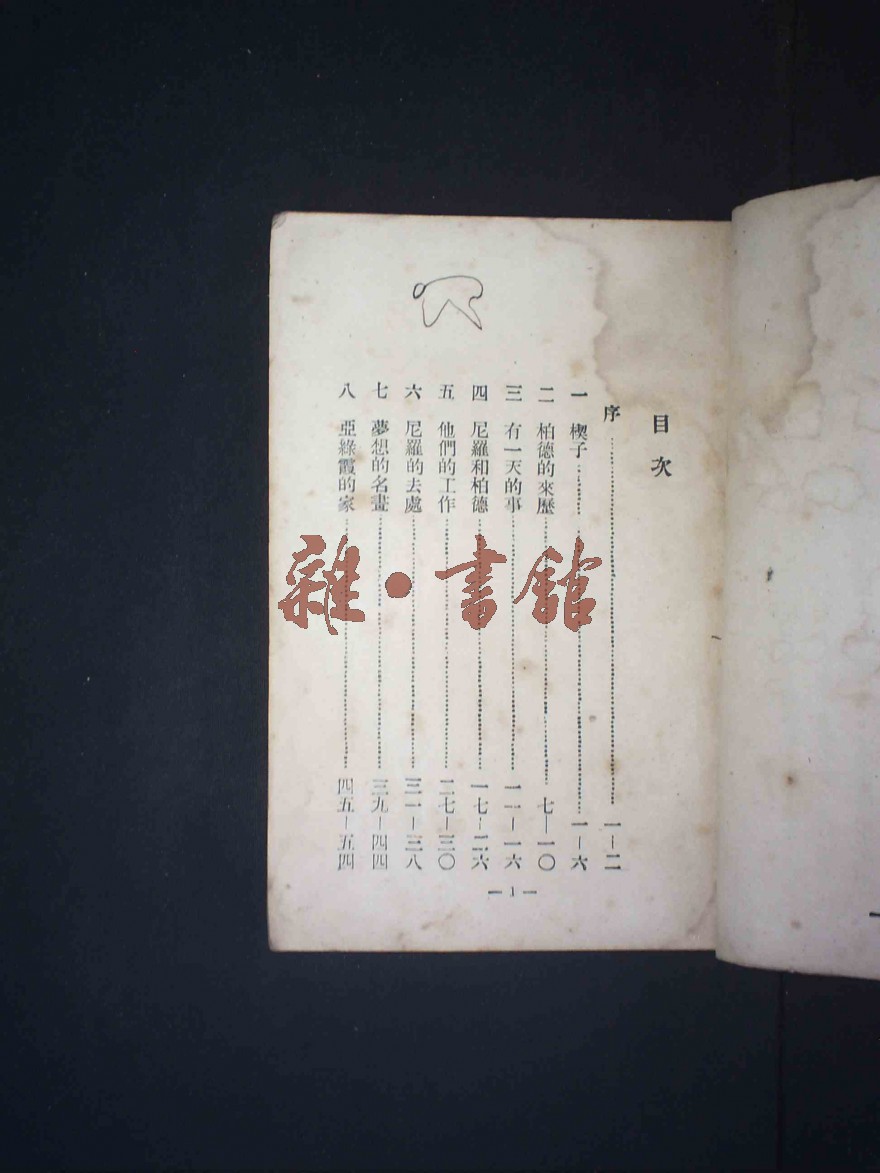 目次
序……………………一—二
一 楔子……………………一—六
二 柏德的來歷……………………七—一〇
三 有一天的事……………………一一—一六
四 尼羅和柏德……………………一七—二六
五 他們的工作……………………二七—三〇
六 尼羅的去處……………………三一—三八
七 夢想的名畫……………………三九—四四
八 亞綠霞的家……………………四五—五四
— 1 —
雜·書館